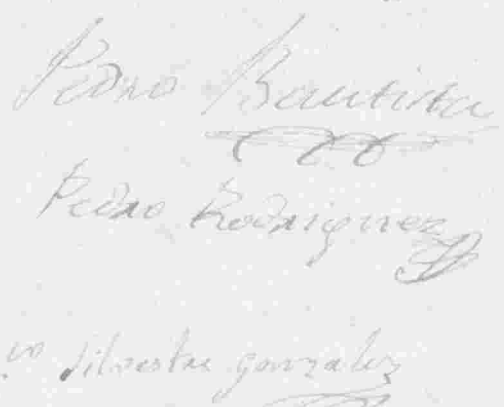 Pedro Bautista
Pedro Rodriguez
Silvestre gonzalez